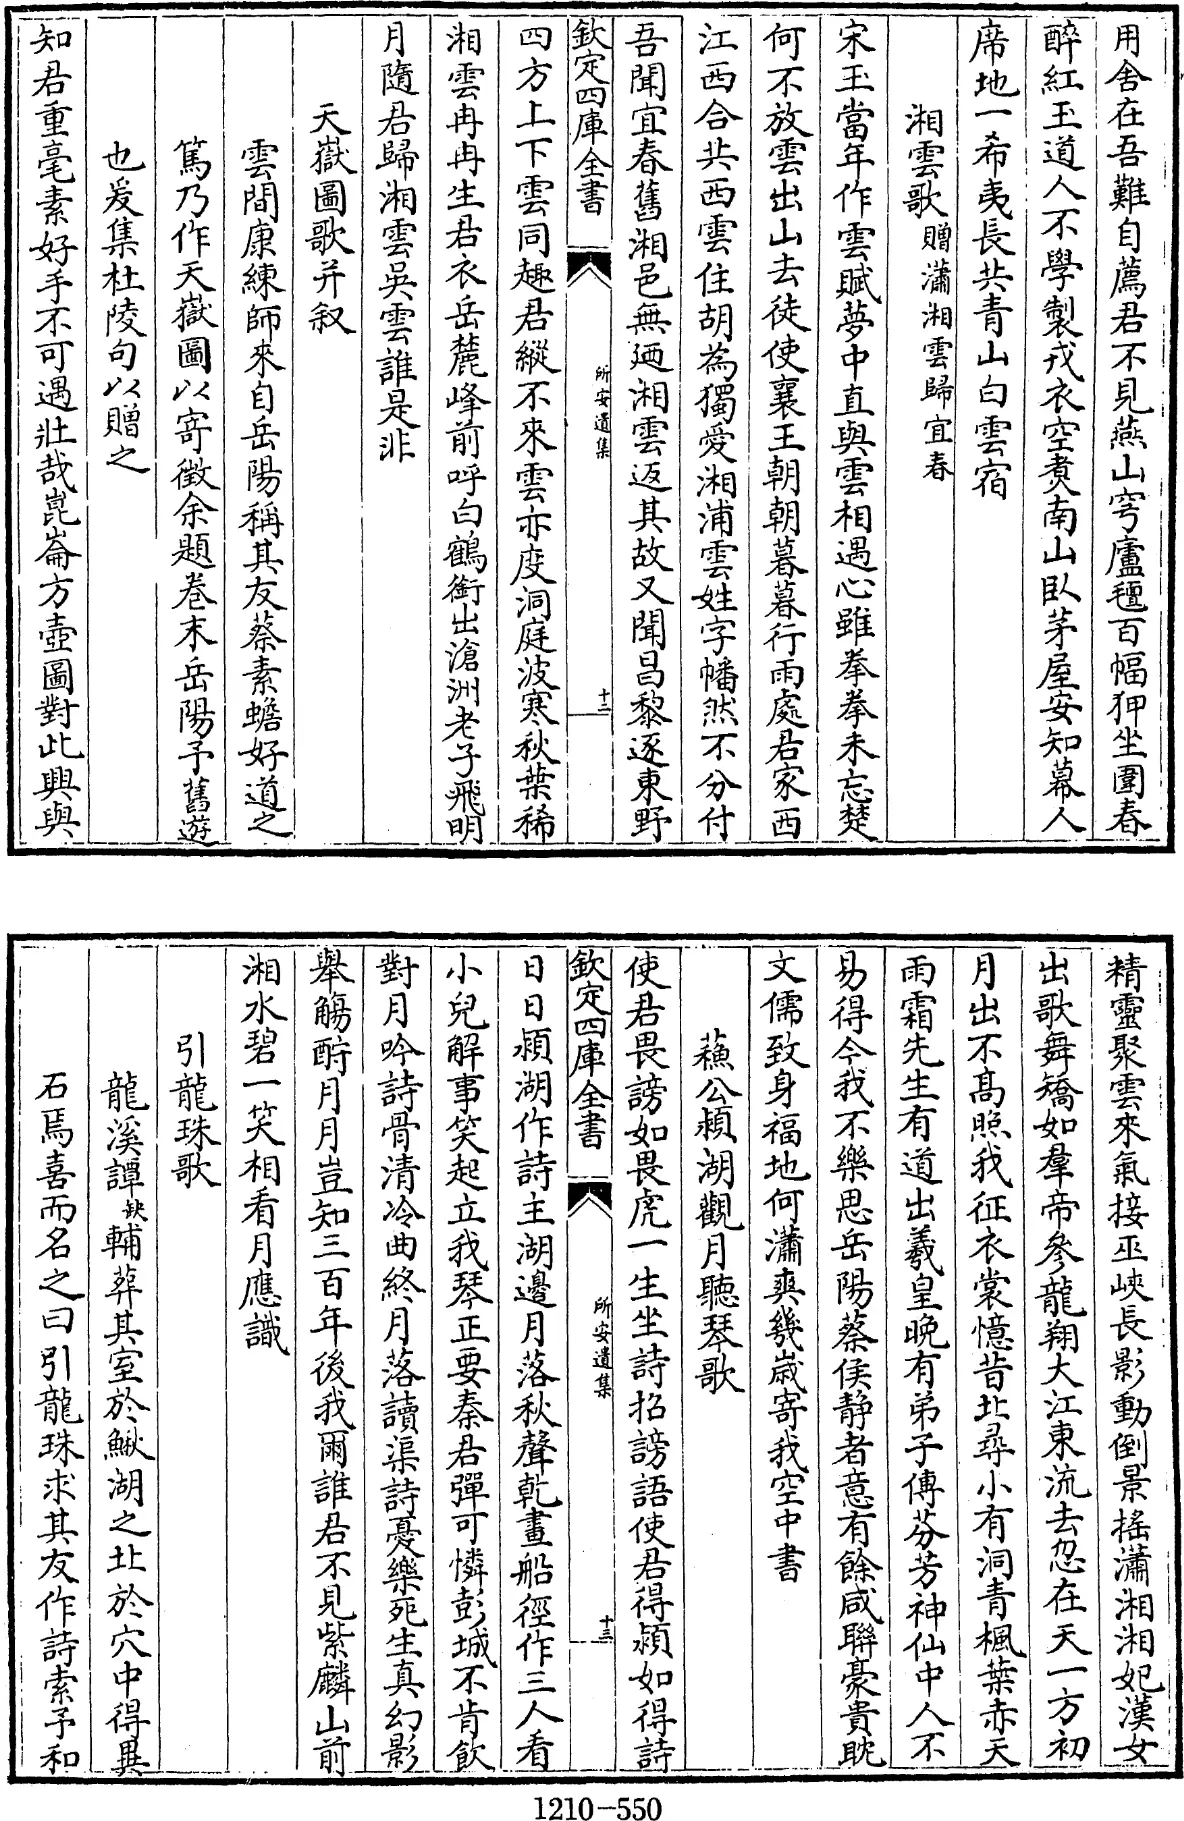 用舍在吾難自薦君不見燕山穹廬氊百幅狎坐圍春
醉紅玉道人不學製戎衣空煑南山臥茅屋安知幕人
席地一希夷長共青山白雲宿
湘雲歌贈瀟湘雲歸宜春
宋玉當年作雲賦夢中直與雲相遇心雖拳拳未忘楚
何不放雲出山去徒使襄王朝朝暮暮行雨處君家西
江西合共西雲住胡為獨愛湘浦雲姓字幡然不分付
吾聞宜春舊湘邑無廼湘雲返其故又聞昌黎逐東野
欽定四庫全書
所安遺集
十二
四方上下雲同趣君縱不來雲亦度洞庭波寒秋葉稀
湘雲冉冉生君衣岳麓峰前呼白鶴銜出滄洲老子飛明
月隨君歸湘雲吳雲誰是非
天嶽圖歌并叙
雲間康練師來自岳陽稱其友蔡素蟾好道之
篤乃作天嶽圖以寄徵余題卷末岳陽予舊遊
也爰集杜陵句以贈之
知君重毫素好手不可遇壯哉崑崙方壺圖對此興與
精靈聚雲來氣接巫峽長影動倒景搖瀟湘湘妃漢女
出歌舞矯如羣帝參龍翔大江東流去忽在天一方初
月出不髙照我征衣裳憶昔北尋小有洞青楓葉赤天
雨霜先生有道出羲皇晚有弟子傳芬芳神仙中人不
易得今我不樂思岳陽蔡侯静者意有餘咸聯豪貴耽
文儒致身福地何瀟爽幾歲寄我空中書
蘓公潁湖觀月聽琴歌
使君畏謗如畏虎一生坐詩招謗語使君得潁如得詩
欽定四庫全書
所安遺集
十三
日日潁湖作詩主湖邊月落秋聲乾畫船徑作三人看
小兒解事笑起立我琴正要秦君彈可憐彭城不肯飲
對月吟詩骨清冷曲終月落讀渠詩憂樂死生真幻影
舉觴酹月月豈知三百年後我爾誰君不見紫麟山前
湘水碧一笑相看月應識
引龍珠歌
龍溪譚缺輔葬其室於鰍湖之北於穴中得異
石焉喜而名之曰引龍珠求其友作詩索予和
1210-550